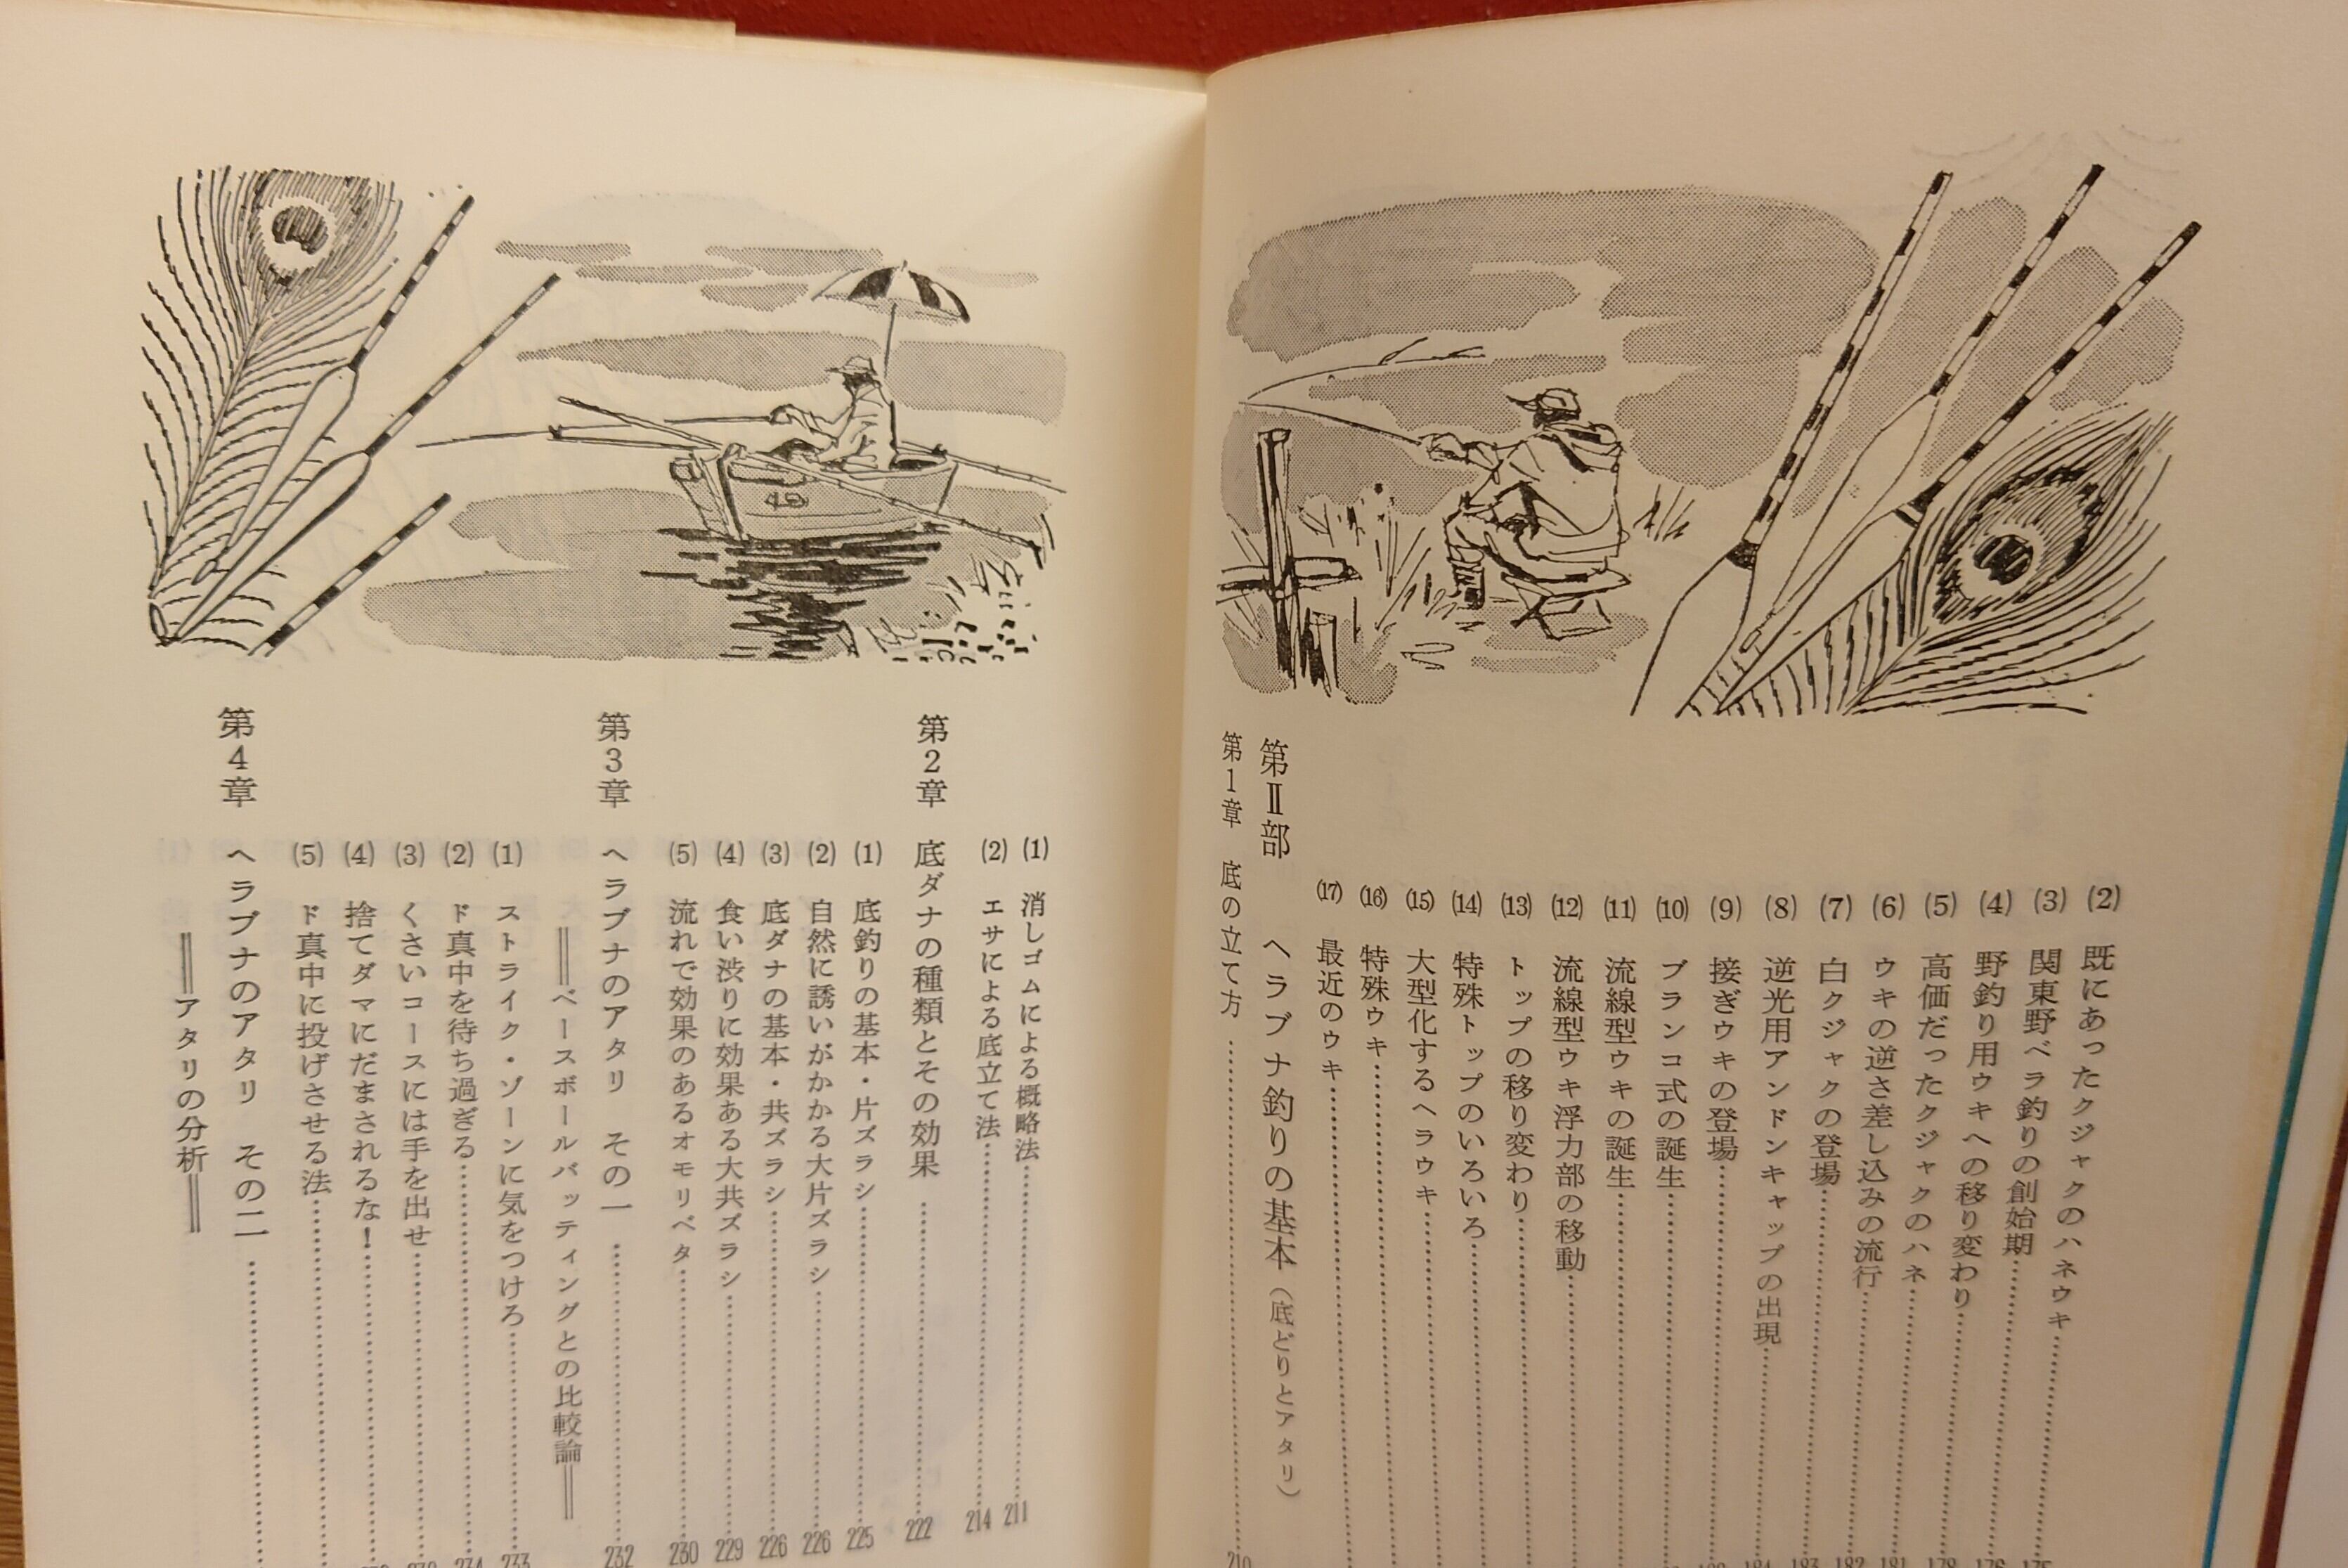 (2) 既にあったクジャクのハネウキ
(3) 関東野ベラ釣りの創始期
(4) 野釣り用ウキへの移り変わり
(5) 高価だったクジャクのハネ
(6) ウキの逆さ差し込みの流行
(7) 白クジャクの登場
(8) 逆光用アンドンキャップの出現
(9) 接ぎウキの登場
(10) ブランコ式の誕生
(11) 流線型ウキの誕生
(12) 流線型ウキ浮力部の移動
(13) トップの移り変わり
(14) 特殊トップのいろいろ
(15) 大型化するヘラウキ
(16) 特殊ウキ
(17) 最近のウキ
第Ⅱ部 ヘラブナ釣りの基本（底どりとアタリ）
第1章 底の立て方……210
(1) 消しゴムによる概略法……211
(2) エサによる底立て法……214
第2章 底ダナの種類とその効果……222
(1) 底釣りの基本・片ズラシ……225
(2) 自然に誘いがかかる大片ズラシ……226
(3) 底ダナの基本・共ズラシ……226
(4) 食い渋りに効果ある大共ズラシ……229
(5) 流れで効果のあるオモリベタ……230
第3章 ヘラブナのアタリ その一……232
══ベースボールバッティングとの比較論══
(1) ストライク・ゾーンに気をつけろ……233
(2) ド真中を待ち過ぎる……234
(3) くさいコースには手を出せ
(4) 捨てダマにだまされるな！
(5) ド真中に投げさせる法
第4章 ヘラブナのアタリ その二
══アタリの分析══
40